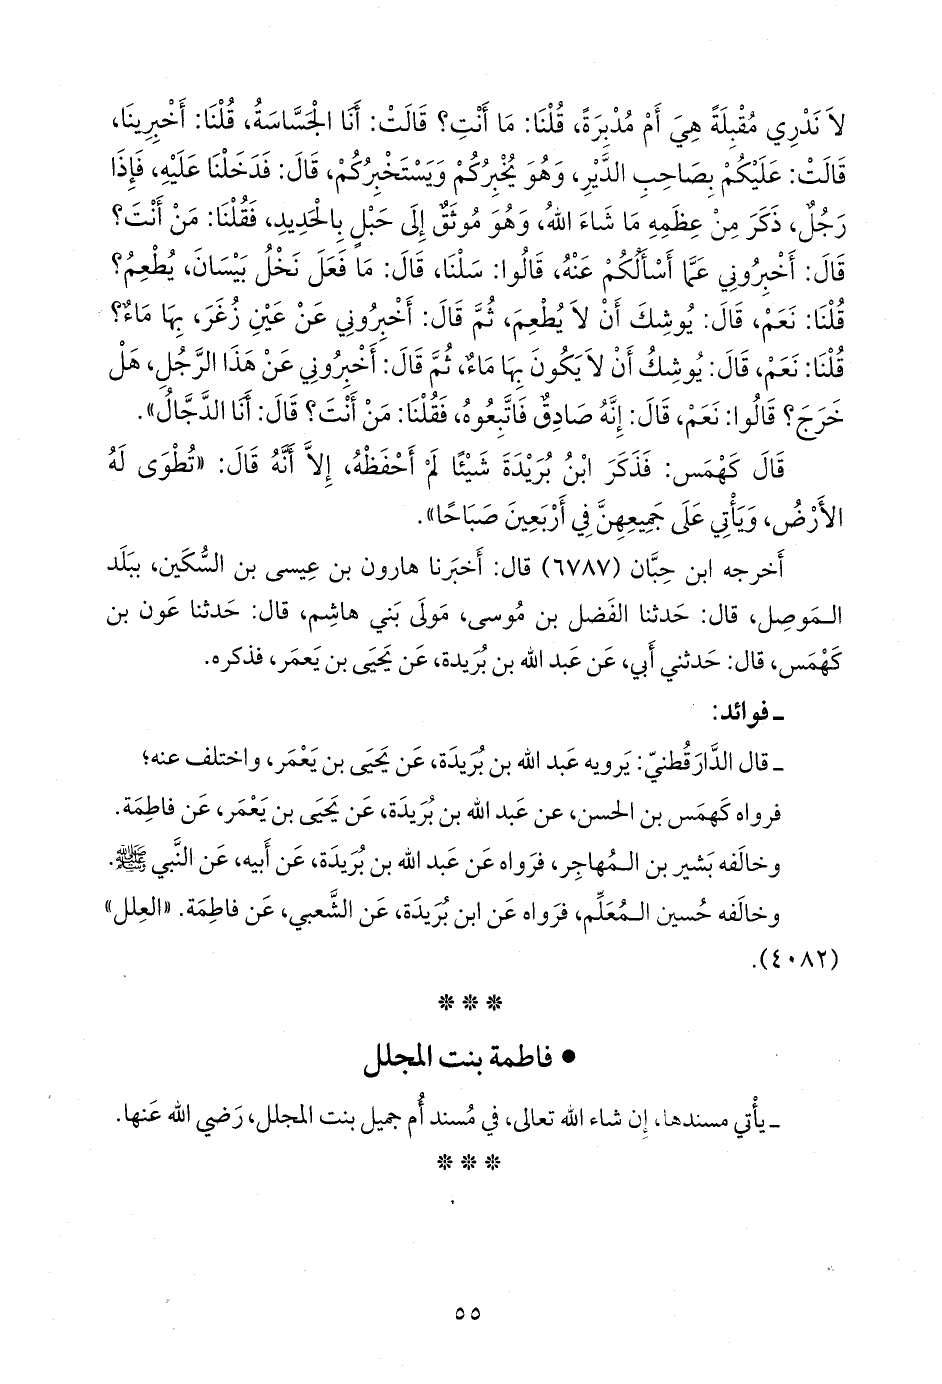 لاَ نَدْرِي مُقْبِلَةً هِيَ أَمْ مُدْبِرَةً، قُلْنَا: مَا أَنْتِ؟ قَالَتْ: أَنَا الْجَسَّاسَةُ، قُلْنَا: أَخْبِرِينَا،
قَالَتْ: عَلَيْكُمْ بِصَاحِبِ الدَّيْرِ، وَهُوَ يُخْبِرُكُمْ وَيَسْتَخْبِرُكُمْ، قَالَ: فَدَخَلْنَا عَلَيْهِ، فَإِذَا
رَجُلٌ، ذَكَرَ مِنْ عِظَمِهِ مَا شَاءَ اللهُ، وَهُوَ مُوثَقٌ إِلَى حَبْلٍ بِالْحَدِيدِ، فَقُلْنَا: مَنْ أَنْتَ؟
قَالَ: أَخْبِرُونِي عَمَّا أَسْأَلُكُمْ عَنْهُ، قَالُوا: سَلْنَا، قَالَ: مَا فَعَلَ نَخْلُ بَيْسَانَ، يُطْعِمُ؟
قُلْنَا: نَعَمْ، قَالَ: يُوشِكُ أَنْ لاَ يُطْعِمَ، ثُمَّ قَالَ: أَخْبِرُونِي عَنْ عَيْنِ زُغَرَ، بِهَا مَاءٌ؟
قُلْنَا: نَعَمْ، قَالَ: يُوشِكُ أَنْ لاَ يَكُونَ بِهَا مَاءٌ، ثُمَّ قَالَ: أَخْبِرُونِي عَنْ هَذَا الرَّجُلِ، هَلْ
خَرَجَ؟ قَالُوا: نَعَمْ، قَالَ: إِنَّهُ صَادِقٌ فَاتَّبِعُوهُ، فَقُلْنَا: مَنْ أَنْتَ؟ قَالَ: أَنَا الدَّجَّالُ».
قَالَ كَهْمَس: فَذَكَرَ ابْنُ بُرَيْدَةَ شَيْئًا لَمْ أَحْفَظْهُ، إِلاَّ أَنَّهُ قَالَ: «تُطْوَى لَهُ
الأَرْضُ، وَيَأْتِي عَلَى جَمِيعِهِنَّ فِي أَرْبَعِينَ صَبَاحًا».
أَخرجه ابن حِبَّان (٦٧٨٧) قال: أَخبَرنا هارون بن عِيسى بن السُّكَين، ببَلَد
المَوصِل، قال: حَدثنا الفَضل بن مُوسى، مَولَى بَني هاشِم، قال: حَدثنا عَون بن
كَهْمَس، قال: حَدثني أَبي، عَن عَبد الله بن بُرَيدة، عَن يَحيَى بن يَعمَر، فذكره.
ـ فوائد:
ـ قال الدَّارَقُطنيّ: يَرويه عَبد الله بن بُرَيدَة، عَن يَحيَى بن يَعْمَر، واختلف عنه؛
فرواه كَهمَس بن الحسن، عن عَبد الله بن بُرَيدَة، عَن يَحيَى بن يَعْمَر، عَن فاطِمَة.
وخالَفه بَشير بن المُهاجِر، فرَواه عَن عَبد الله بن بُرَيدَة، عَن أَبيه، عَن النَّبي ﷺ.
وخالَفه حُسين المُعَلِّم، فرَواه عَن ابن بُرَيدَة، عَن الشَّعبي، عَن فاطِمَة. «العِلل»
(٤٠٨٢).
❊ ❊ ❊
• فاطمة بنت المجلل
ـ يأْتي مسندها، إِن شاء الله تعالى، في مُسند أُم جميل بنت المجلل، رَضي الله عَنها.
❊ ❊ ❊
٥٥